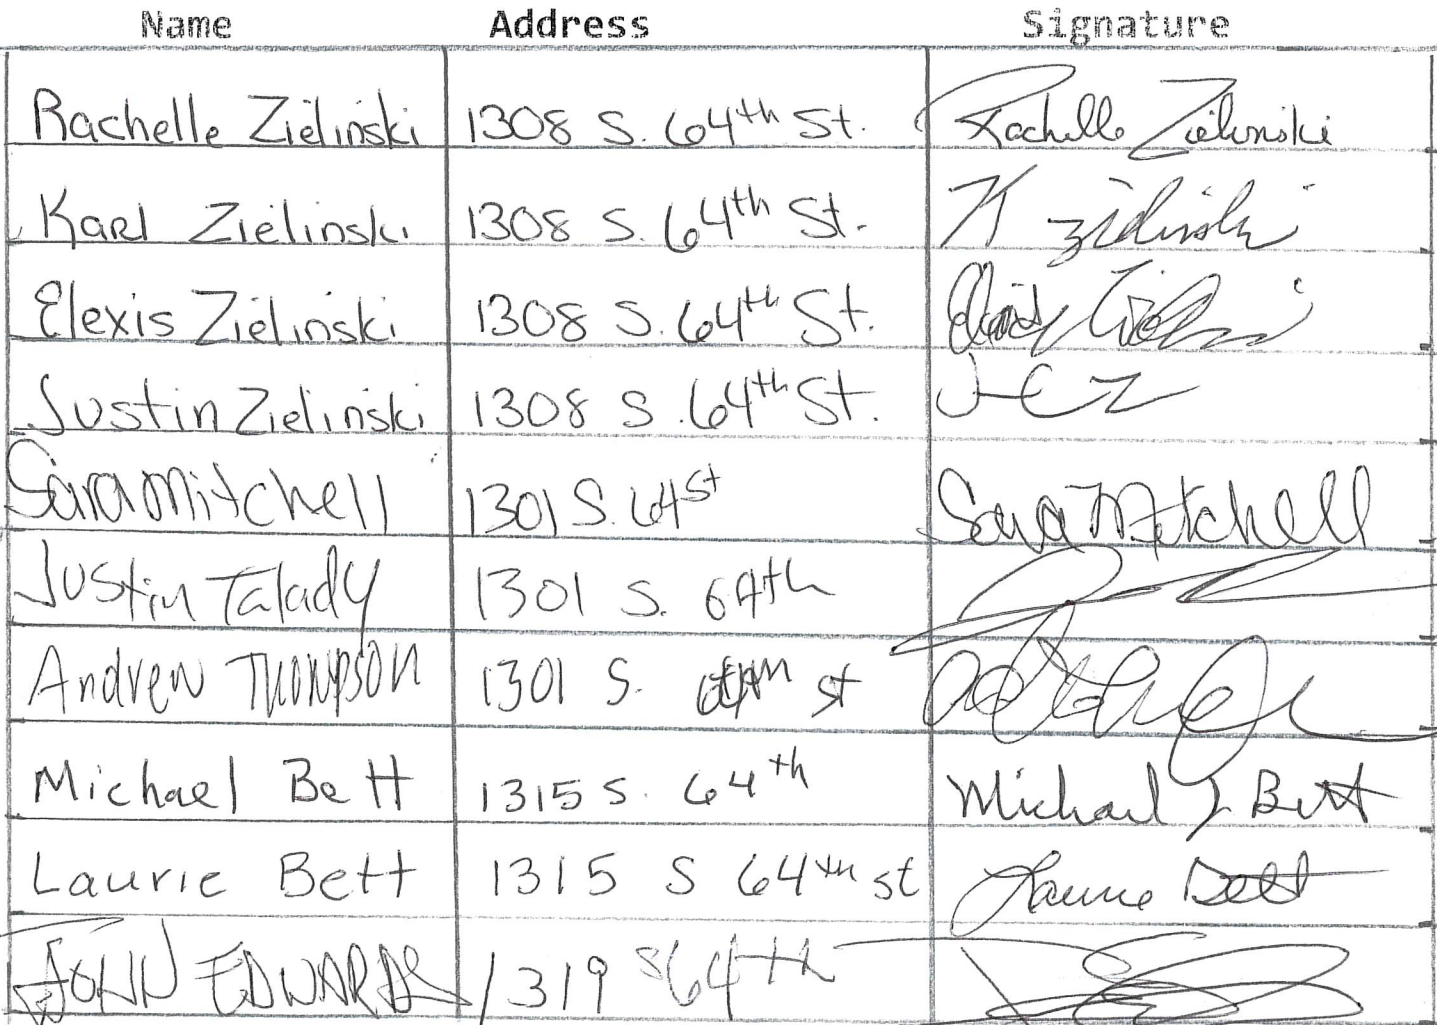 Name Address Signature
Rachelle Zielinski 1308 S. 64th St. Rachelle Zielinski
Karl Zielinski 1308 S. 64th St. K Zielinski
Elexis Zielinski 1308 S. 64th St.
Justin Zielinski 1308 S. 64th St. J C Z
Sara Mitchell 1301 S. 64 St Sara Mitchell
Justin Talady 1301 S. 64th
Andrew Thompson 1301 S. st
Michael Bett 1315 S. 64th Michael J Bett
Laurie Bett 1315 S 64th st Laurie Bett
JOHN EDWARDS 1319 S 64th